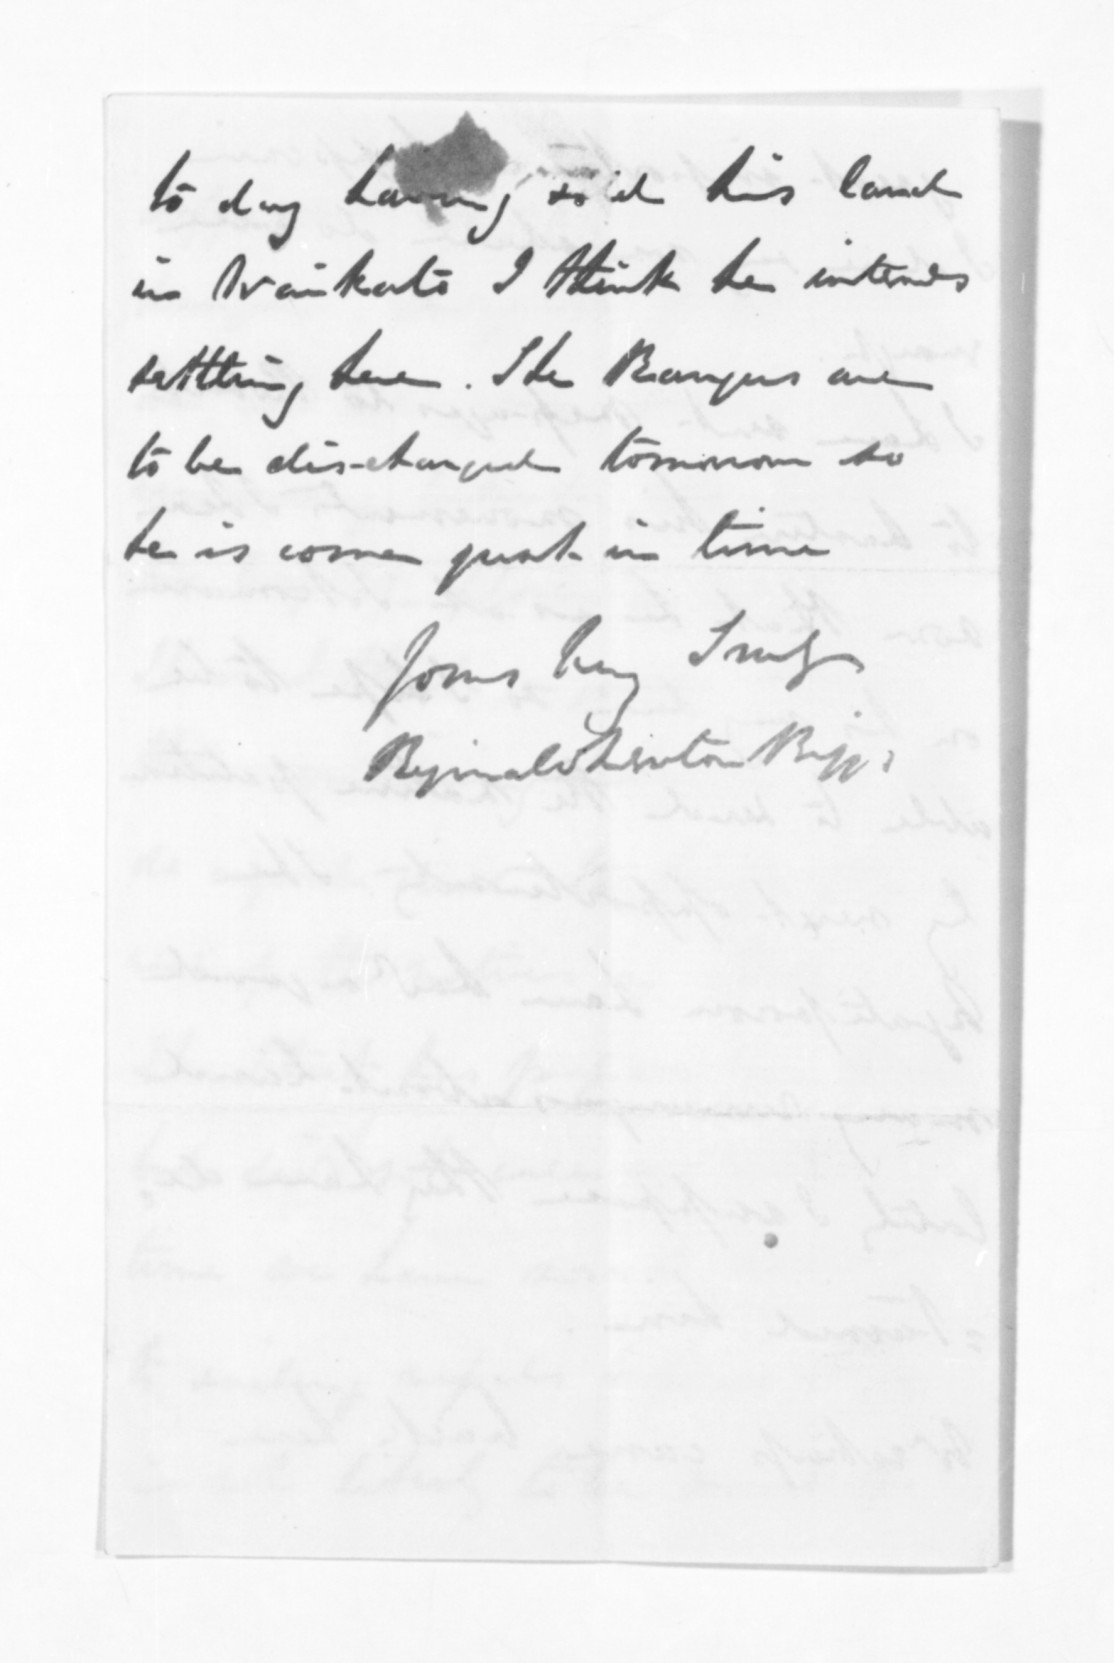 to day having sold his land
in Waikato I think he intends
settling here. The Rangers are
to be dis-charged tomorrow so
he is come just in time
Yours very Truly
Reginald Newton Biggs